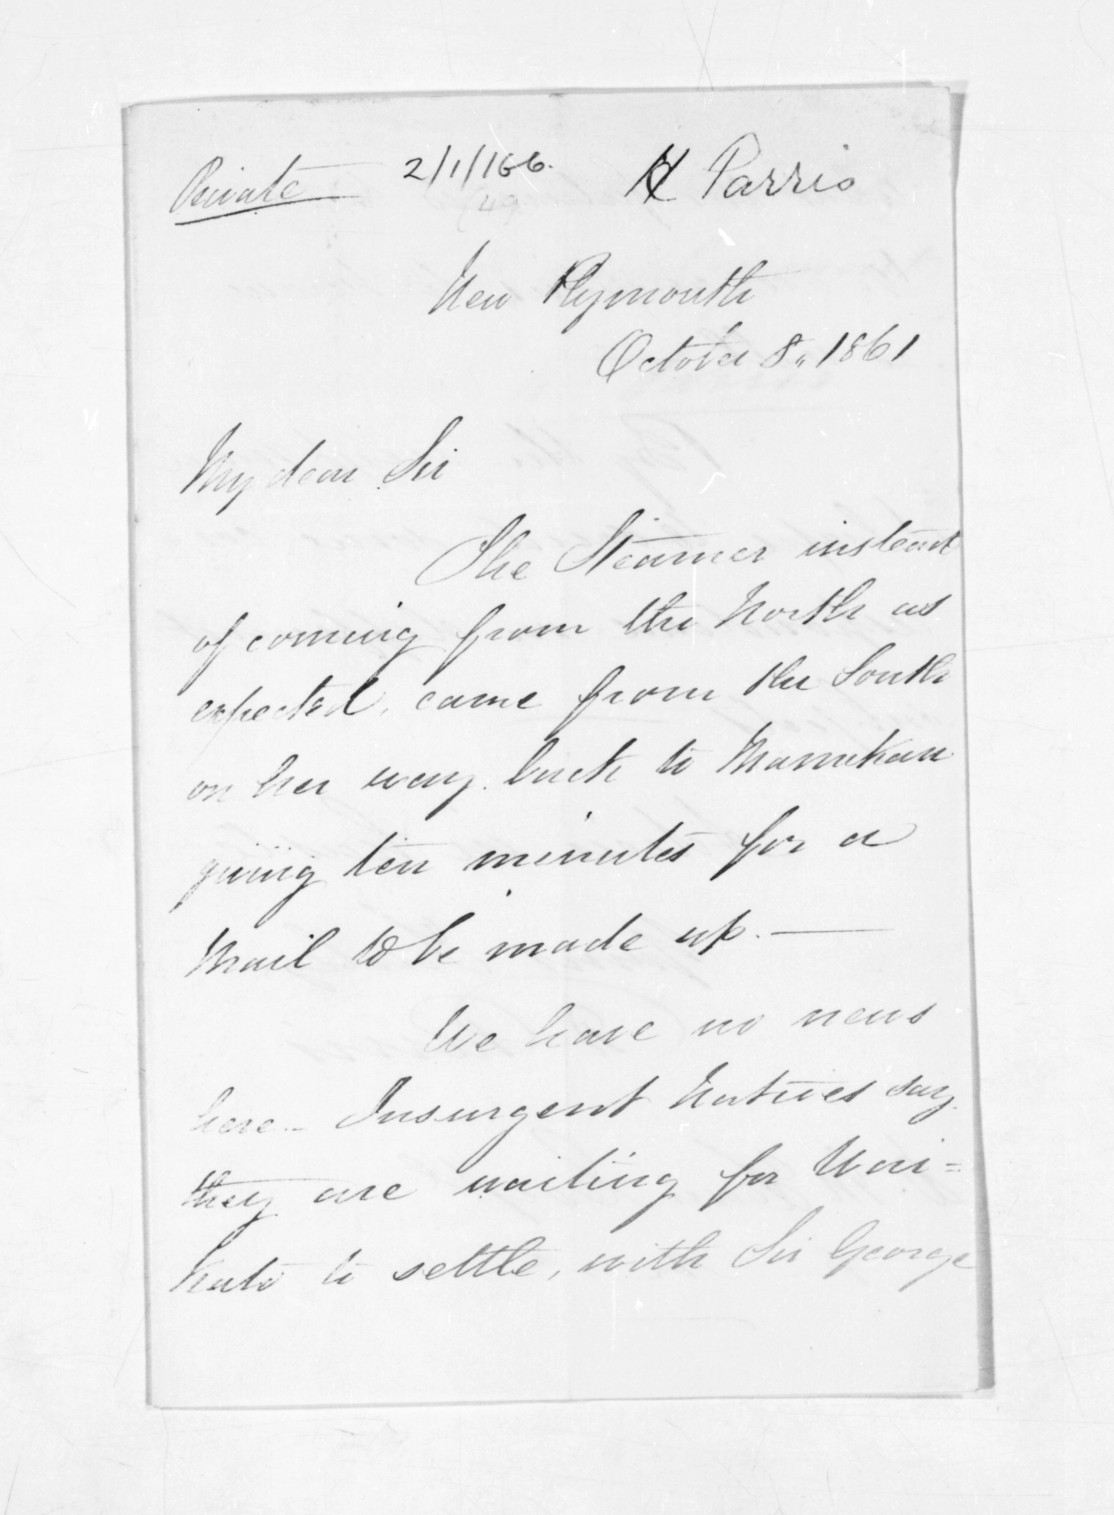 Private 2/1/166. H Parris
(49
New Plymouth
October 8,, 1861
My dear Sir
The Steamer instead
of coming from the North as
expected, came from the South
on her way back to Manukau
giving ten minutes for a
Mail to be made up. —
We have no news
here - Insurgent Natives say
they are waiting for Wai=
kato to settle, with Sir George